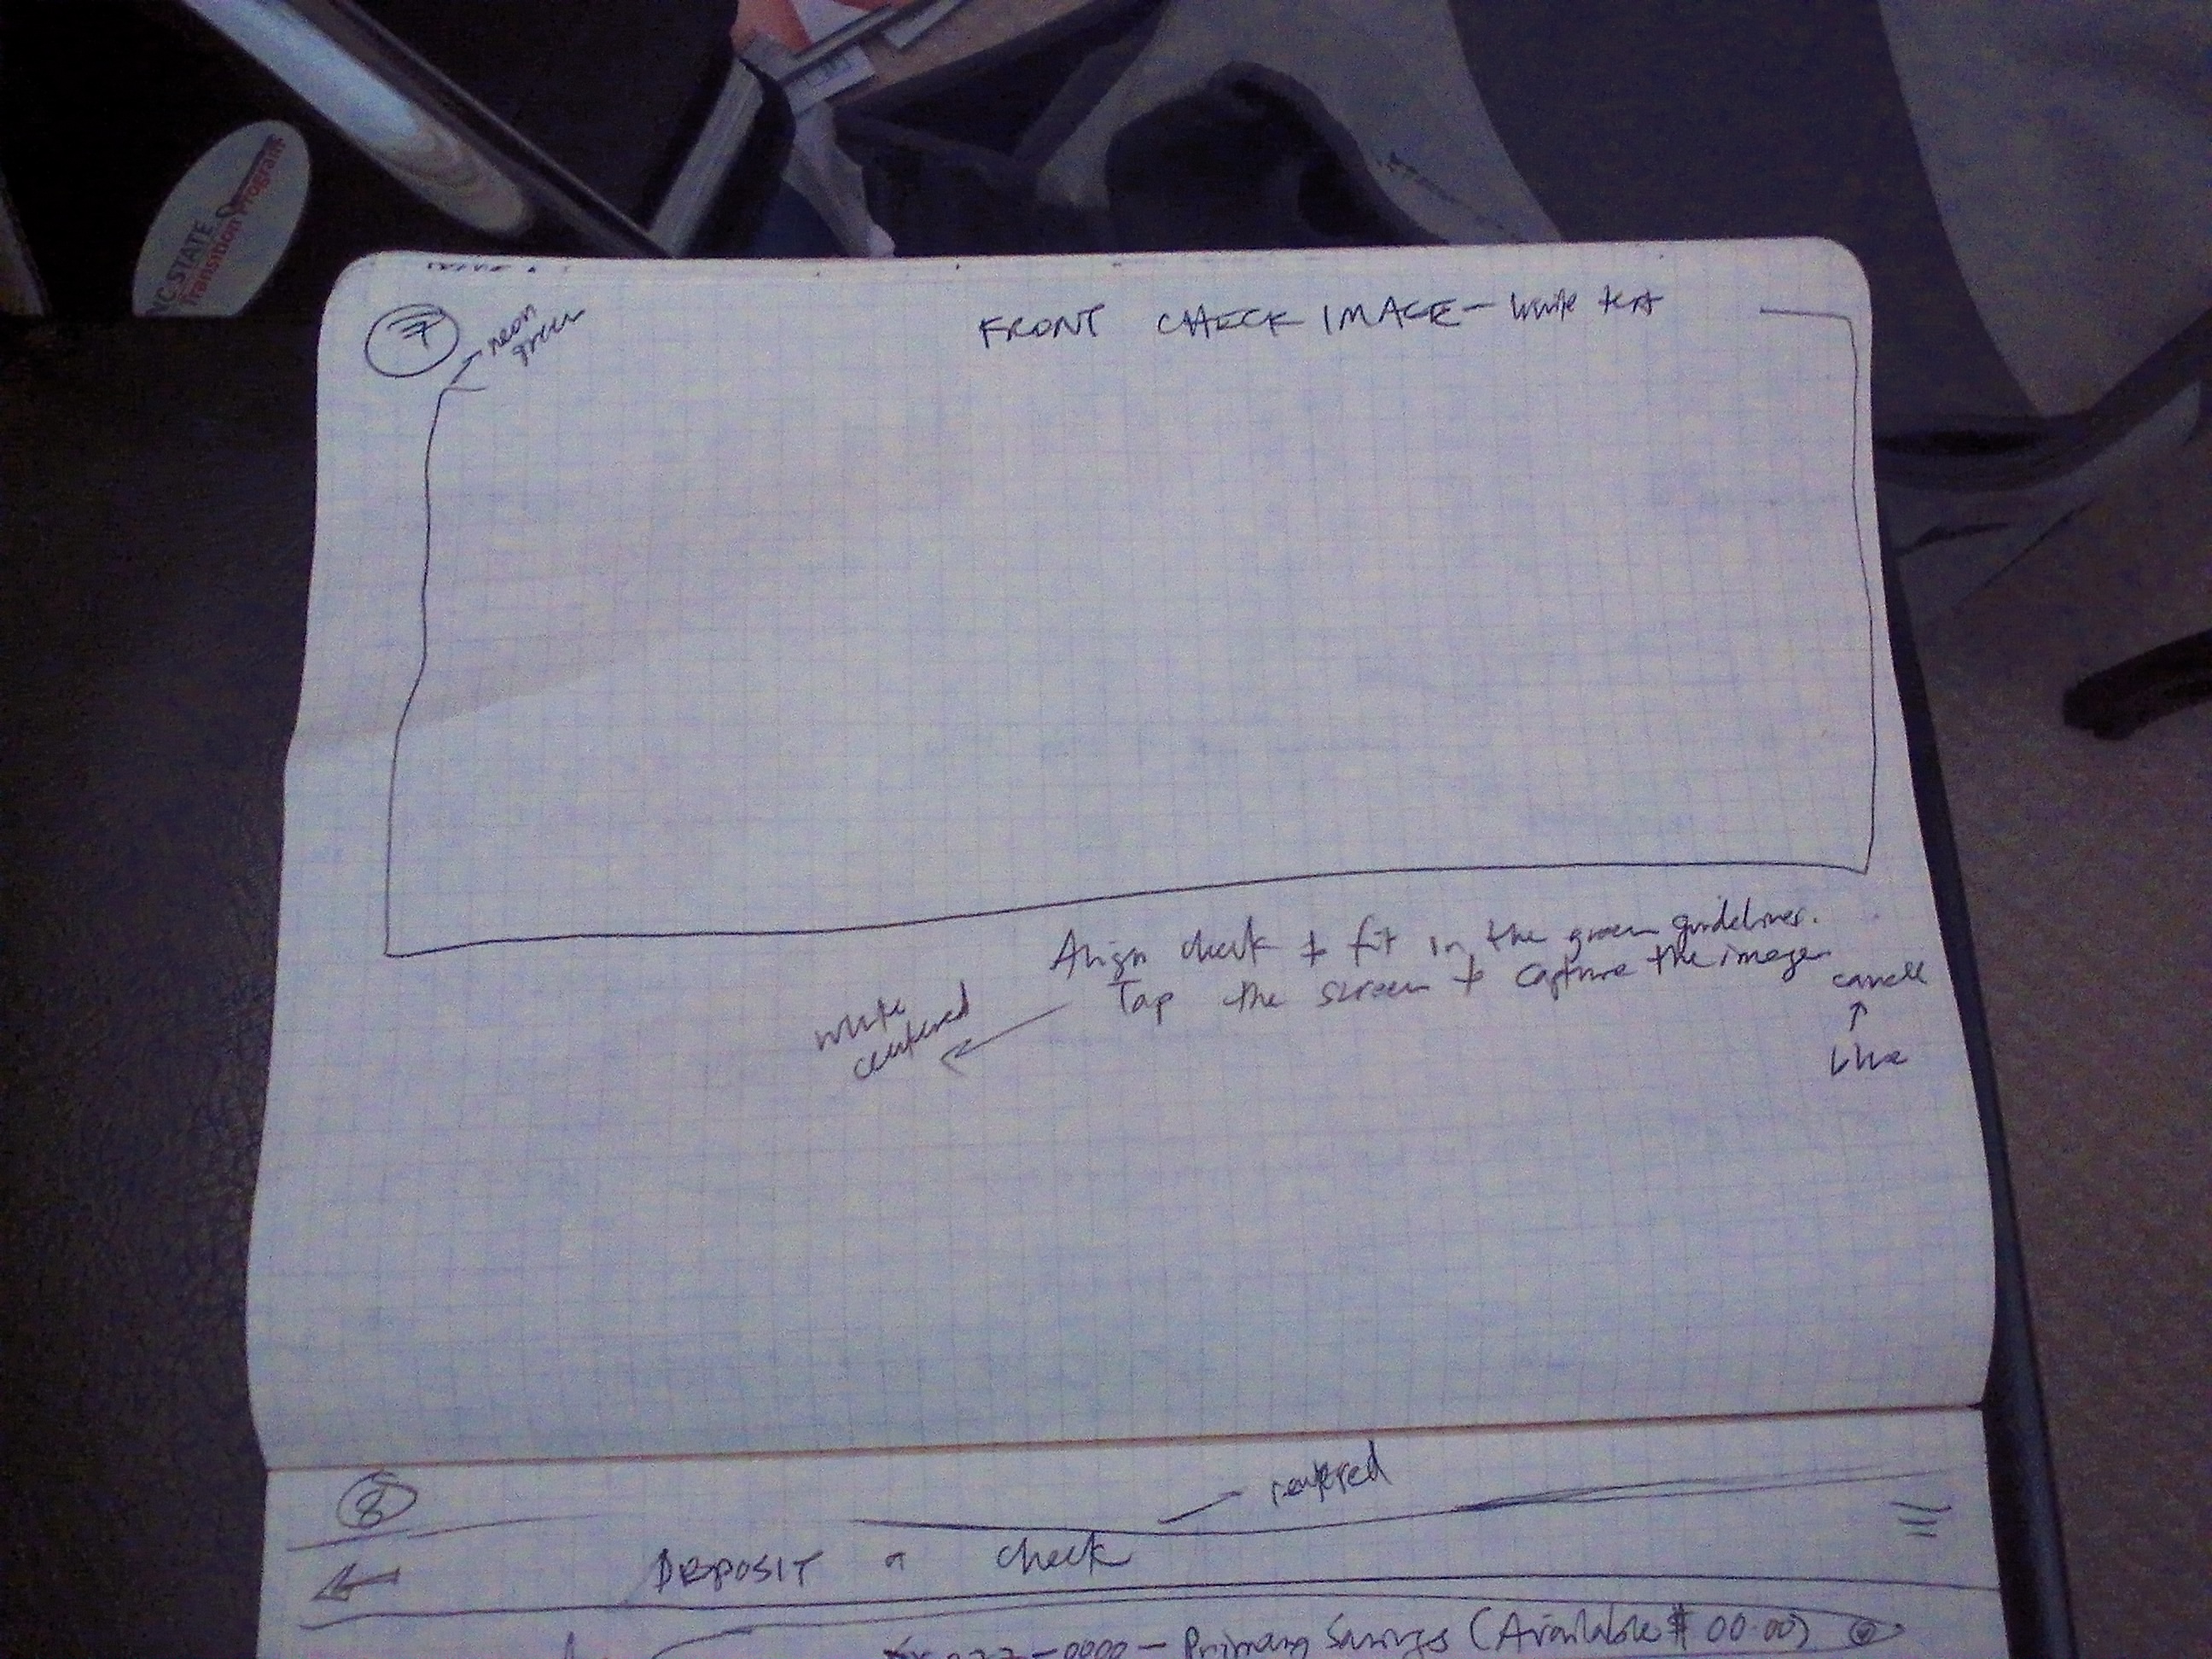 NC STATE
Transition Program
7
neon
green
FRONT CHECK IMAGE - white text
Align check to fit in the green guidelines.
Tap the screen to capture the image
cancel
blue
white
centered
8
centered
DEPOSIT a check
-0000 - Primary Savings (Available $ 00.00)